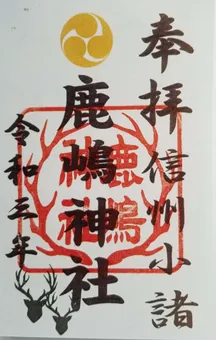 奉拝
信州小諸
鹿嶋神社
鹿嶋
神社
令和三年